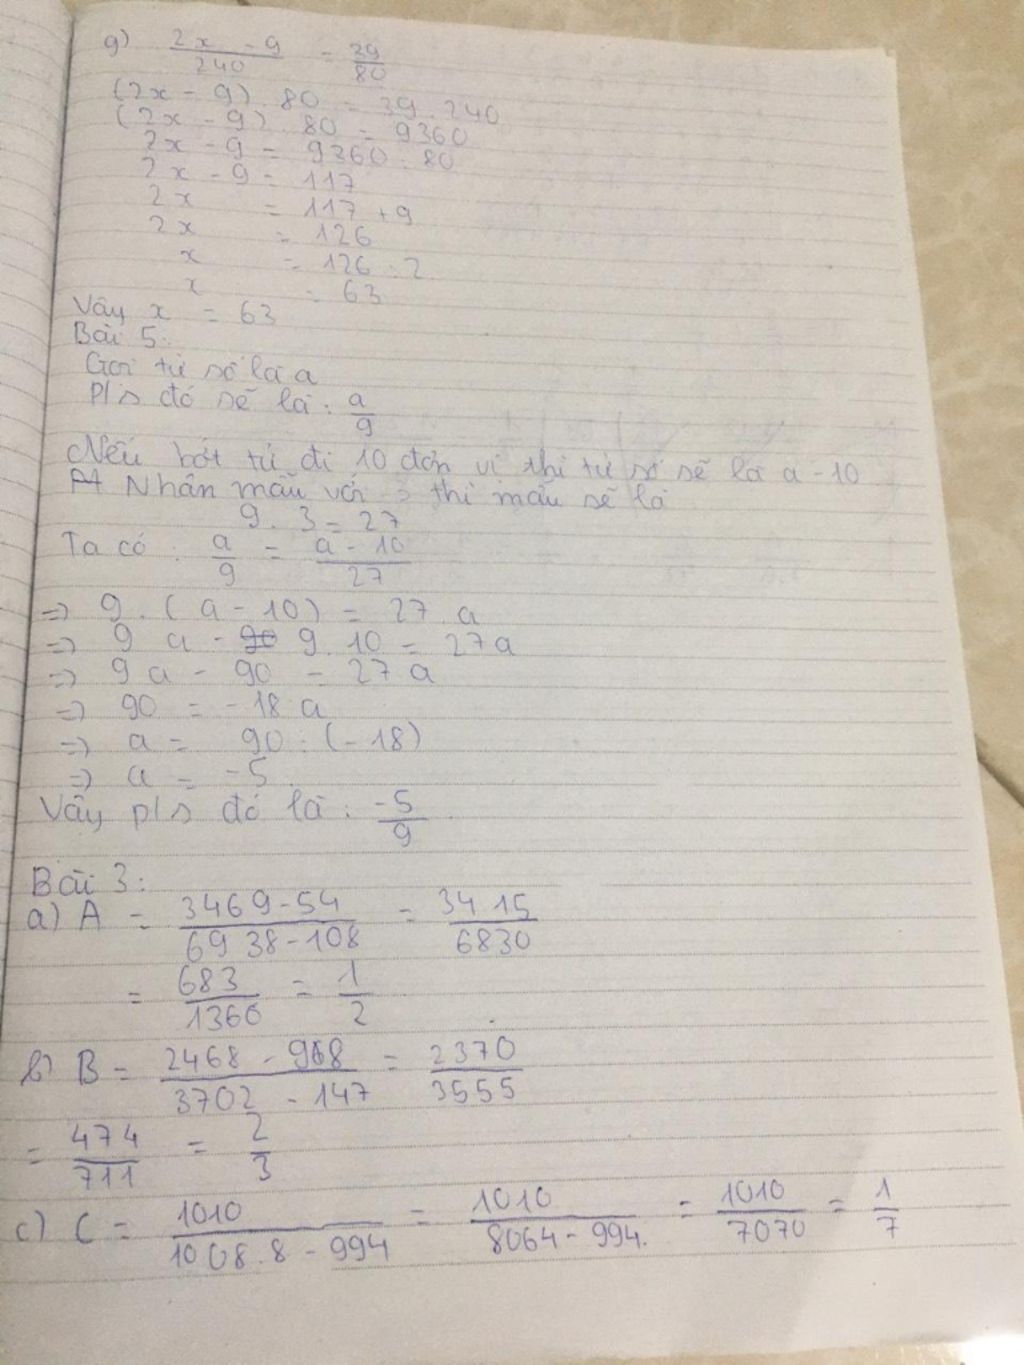 g) (2x - 9)/240 = 39/80
(2x - 9) . 80 = 39 . 240
(2x - 9) . 80 = 9360
2x - 9 = 9360 : 80
2x - 9 = 117
2x = 117 + 9
2x = 126
x = 126 : 2
x = 63
Vậy x = 63
Bài 5:
Gọi tử số là a
P/s đó sẽ là : a/9
Nếu bớt tử đi 10 đơn vị thì tử số sẽ là a - 10
Nhân mẫu với 3 thì mẫu sẽ là
9 . 3 = 27
Ta có : a/9 = (a - 10)/27
=> 9 . (a - 10) = 27 . a
=> 9 a - 9 . 10 = 27a
=> 9a - 90 = 27 a
=> 90 = -18 a
=> a = 90 : (-18)
=> a = -5
Vậy p/s đó là : -5/9
Bài 3:
a) A = (3469 - 54)/(6938 - 108) = 3415/6830
= 683/1360 = 1/2
b) B = (2468 - 98)/(3702 - 147) = 2370/3555
= 474/711 = 2/3
c) C = 1010/(1008 . 8 - 994) = 1010/(8064 - 994) = 1010/7070 = 1/7